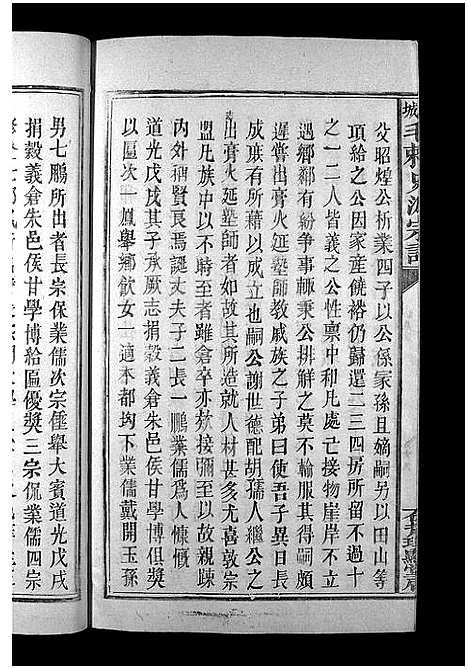 父昭煌公析業四子以公係家孫且嫡嗣另以田山等
項給之公因家產饒裕仍歸還二三四房所留不過十
之一二人皆義之公性稟中和凡處亡接物崖岸不立
遇鄉鄰有紛爭輒秉公排解之莫不輸服其得嗣頗
遲嘗出膏火延塾師教戚族之子弟曰使吾子異日長
成庶有所藉以成立也嗣公謝世德配胡孺人繼公之
出膏火延塾師者如故其所造就人材甚多尤喜敦宗
盟凡族中以不時至者雖倉卒亦欵接彌至以故親疎
內外神賢良焉誕丈夫子二長一鵬業儒爲人慷慨
道光戊戌其子承厥志捐穀義倉朱邑侯甘學博俱獎
以區次一鳳舉鄉飲女一適本都坳下業儒戴開玉孫
男七鵬所出者長宗保業儒次宗僅舉大賓道光戊戌
捐穀義倉朱邑侯甘學博給區優獎三宗侃業儒四宗